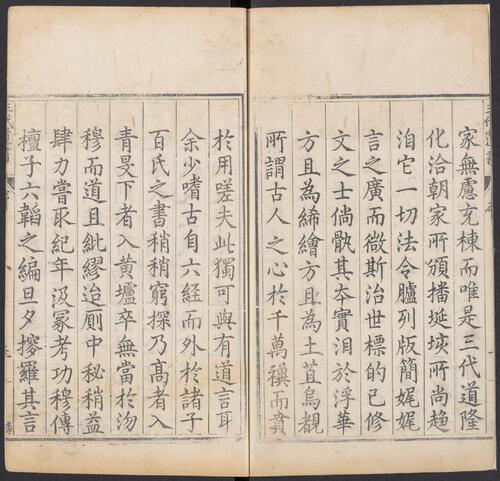 家無慮充棟而唯是三代道隆
化洽朝家所頒播埏垓所尚趨
洎它一切法令臚列版簡娓娓
言之廣而徵斯治世標的已修
文之士倘骫其夲實汩於浮華
方且為絺繪方且為土苴烏覩
所謂古人之心於千萬禩而賁
於用嗟夫此獨可與有道言耳
余少嗜古自六經而外於諸子
百氏之書稍稍窮探乃髙者入
青旻下者入黄壚卒無當於汤
穆而道且紕繆迨厠中秘稍益
肆力嘗取紀年汲冢考功穆傳
檀子六韜之編旦夕摎羅其言
三代遺書